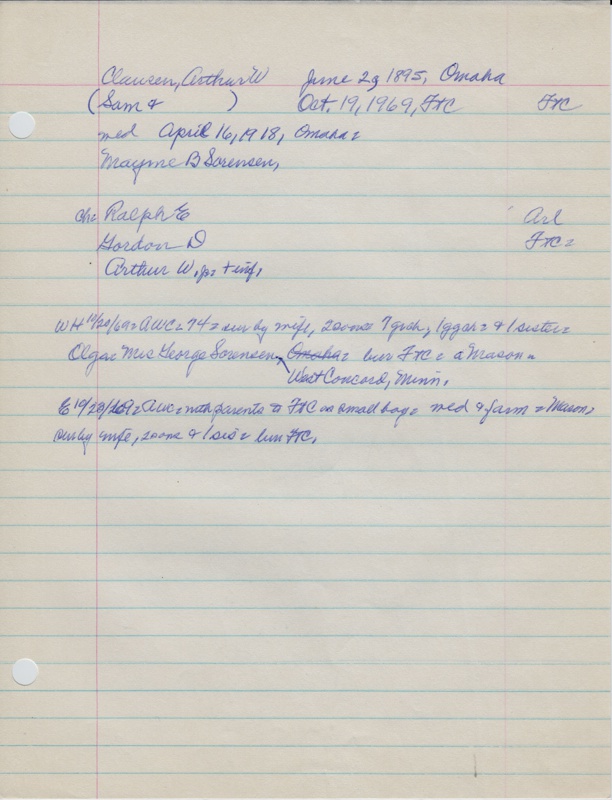 Clausen, Arthur W June 29 1895, Omaha
(Sam & ) Oct. 19, 1969, FtC FtC
med April 16, 1918, Omaha=
Mayme B Sorensen,
ch: Ralph E Arl
Gordon D FtC=
Arthur W, jr= + inf.
WH 10/20/69= AWC= 74= sur by wife, 2 sons= 7 gch, 1 ggch= & 1 sister=
Olga= Mrs George Sorensen, Omaha= bur FtC= a Mason=
West Concord, Minn.
E 10/20/69= AWC= with parents to FtC as small boy= med & farm= Mason=
sur by wife, 2 sons & 1 sis= bur FtC.